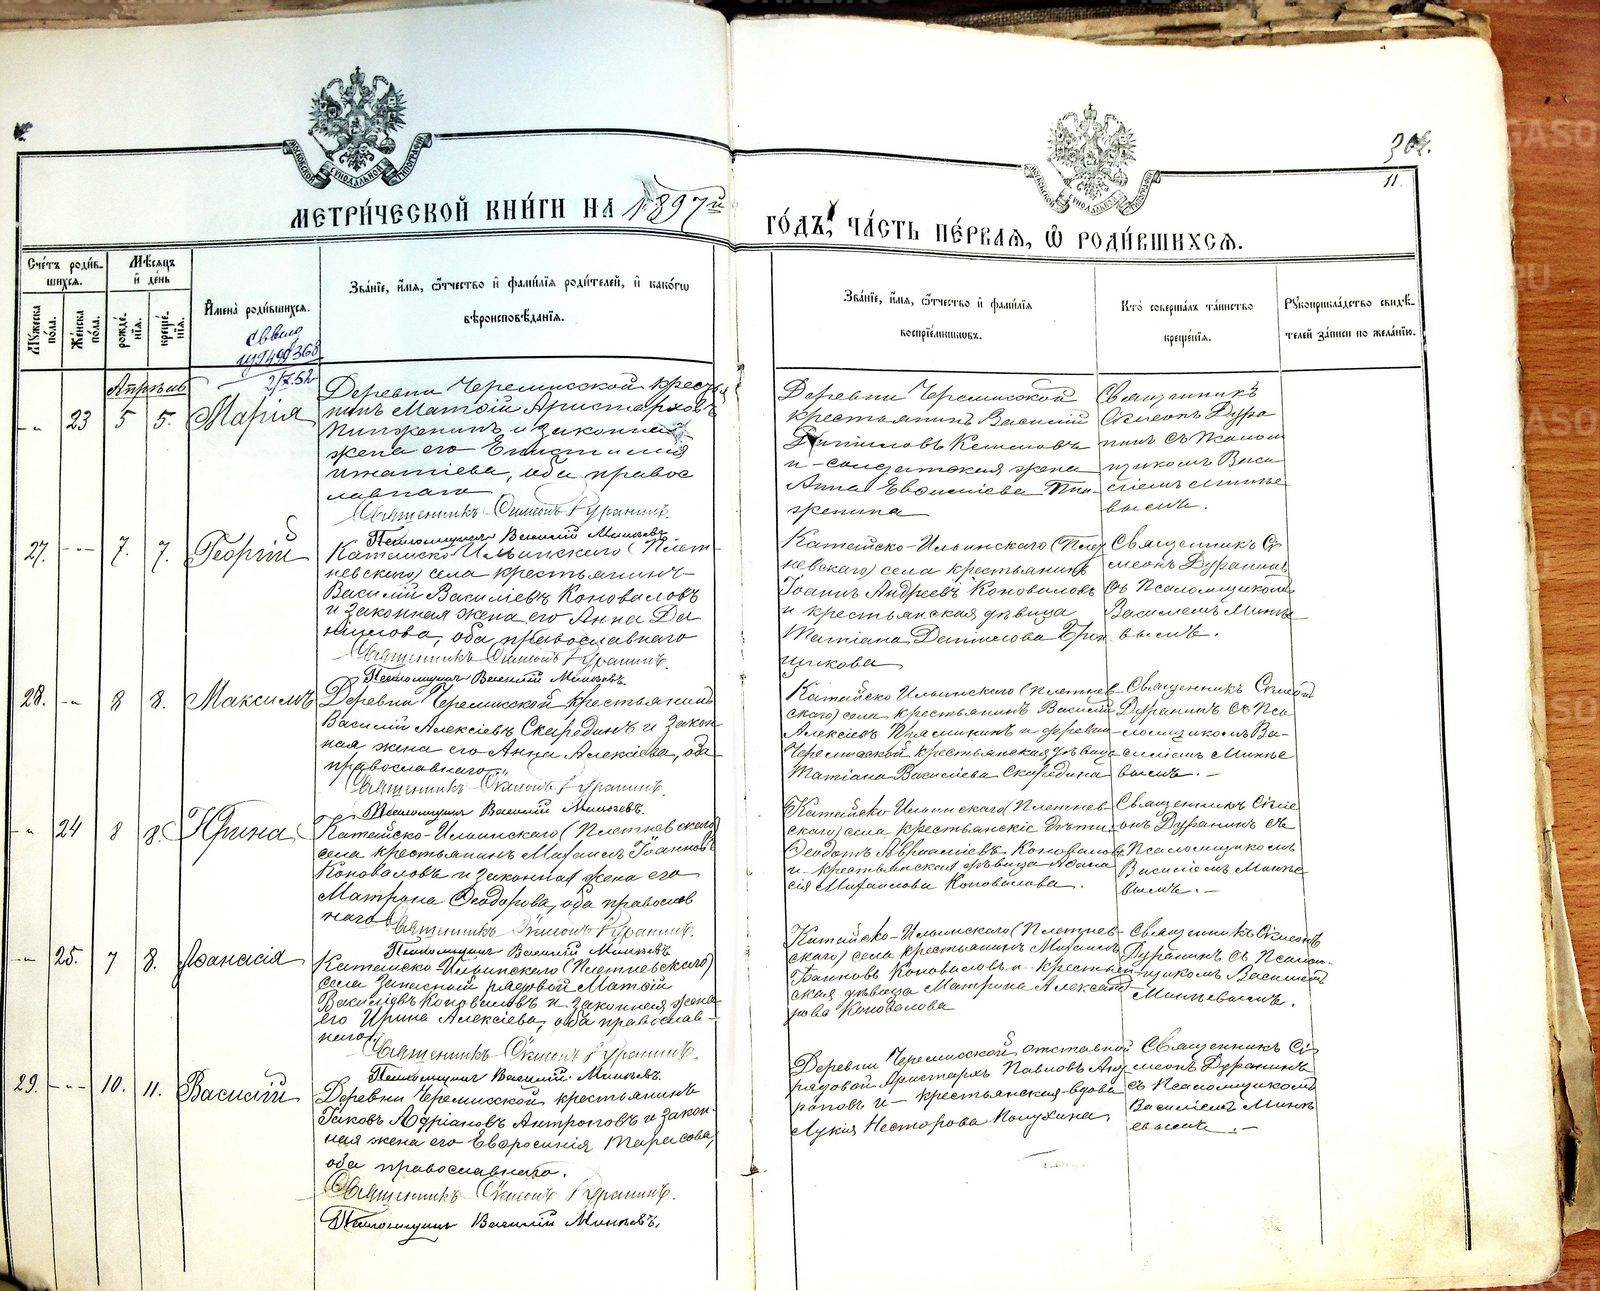 МЕТРИ́ЧЕСКОЙ КНИ́ГИ НА 1897й
ГО́ДЪ, ЧА́СТЬ ПЕ́РВАЯ, Ѽ РОДИ́ВШИХСЯ.
302.
11.
Сче́тъ роди́в-
шихся.
Му́жеска
по́ла.
Же́нска
по́ла.
Мѣ́сяцъ
и҆ де́нь
рожде́-
нїя.
креще́-
нїя.
И҆мена̀ роди́вшихся.
Зва́нїе, и҆́мя, ѻ҆́тчество и҆ фами́лїя роди́телей, и҆ како́гѡ
вѣроисповѣ́данїя.
Зва́нїе, и҆́мя, ѻ҆́тчество и҆ фами́лїя
воспрїе́мниковъ.
Кто̀ соверша́лъ та́инство
креще́нїя.
Рукоприкла́дство свидѣ́-
телей за́писи по жела́нїю.
2/X.52
Апрѣль
23
5
5.
Марія
Деревни Черемисской кресть
нинъ Матѳій Аристарховъ
и законная
жена его Епистимія
Игнатіева, оба правос
лавнаго
Священникъ Симеонъ Дуранинъ.
Псаломщикъ Василій Миняевъ
Деревни Черемисской
крестьянинъ Василій
и солдатская жена
Анна Евѳиміева Пин-
женина
Священникъ
Симеонъ Дура
нинъ съ Псалом
щикомъ Васи
ліемъ Миняе
вымъ.
27.
7.
7.
Георгій
Катайско-Ильинскаго (Плет-
невскаго) села крестьянинъ
Василій Василіевъ Коноваловъ
и законная жена его Анна Да
нилова, оба православнаго
Священникъ Симеонъ Дуранинъ.
Псаломщикъ Василій Миняевъ.
Катайско-Ильинскаго (Плет
невскаго) села крестьянинъ
Іоаннъ Андреевъ Коноваловъ
и крестьянская дѣвица
Татіана Данилова Бѣли
щикова
Священникъ Си
меонъ Дуранинъ
съ Псаломщикомъ
Василіемъ Миняе
вымъ.
28.
8
8.
Максимъ
Деревни Черемисской крестьянинъ
Василій Алексіевъ Скарединъ и закон
ная жена его Анна Алексіева, оба
православнаго
Священникъ Симеонъ Дуранинъ.
Псаломщикъ Василій Миняевъ.
Катайско Ильинскаго (Плетнев-
скаго) села крестьянинъ Василій
Алексіевъ Прямининъ и деревни
Черемисской крестьянская дѣвица
Татіана Василіева Скаредина
Священникъ Симеонъ
Дуранинъ съ Пса-
ломщикомъ Ва-
силіемъ Миняе
вымъ.
24
8
8.
Ирина
Катайско-Ильинскаго (Плетневскаго)
села крестьянинъ Михаилъ Іоанновъ
Коноваловъ и законная жена его
Матрона Ѳеодорова, оба православ
наго
Священникъ Симеонъ Дуранинъ.
Псаломщикъ Василій Миняевъ
Катайско-Ильинскаго (Плетнев-
скаго) села крестьянскіе дѣти:
Ѳеодотъ Авраамиевъ Коноваловъ
и крестьянская дѣвица Аѳана
сія Михаилова Коновалова.
Священникъ Симе
онъ Дуранинъ съ
Псаломщикомъ
Василіемъ Миняе
вымъ.
25.
7
8.
Аѳанасія
Катайско-Ильинскаго (Плетневскаго)
села запасный рядовой Матѳій
Василіевъ Коноваловъ и законная жена
его Ирина Алексіева, оба православ-
наго.
Священникъ Симеонъ Дуранинъ.
Псаломщикъ Василій Миняевъ.
Катайско-Ильинскаго (Плетнев-
скаго) села крестьянинъ Михаилъ
Іоанновъ Коноваловъ и крестьян
ская дѣвица Матрона Александ
рова Коновалова
Священникъ Симеонъ
Дуранинъ съ Псалом-
щикомъ Василіемъ
Миняевымъ.
29.
10.
11.
Василій
Деревни Черемисской крестьянинъ
Іаковъ Адріановъ Антроповъ и закон-
ная жена его Евфросинія Тарасова,
оба православнаго.
Священникъ Симеонъ Дуранинъ.
Псаломщикъ Василій Миняевъ.
Деревни Черемисской отставной
рядовой Аристархъ Павловъ Ант
роповъ и крестьянская вдова
Лукія Несторова Полухина
Священникъ Си
меонъ Дуранинъ
съ Псаломщикомъ
Василіемъ Миня
евымъ.